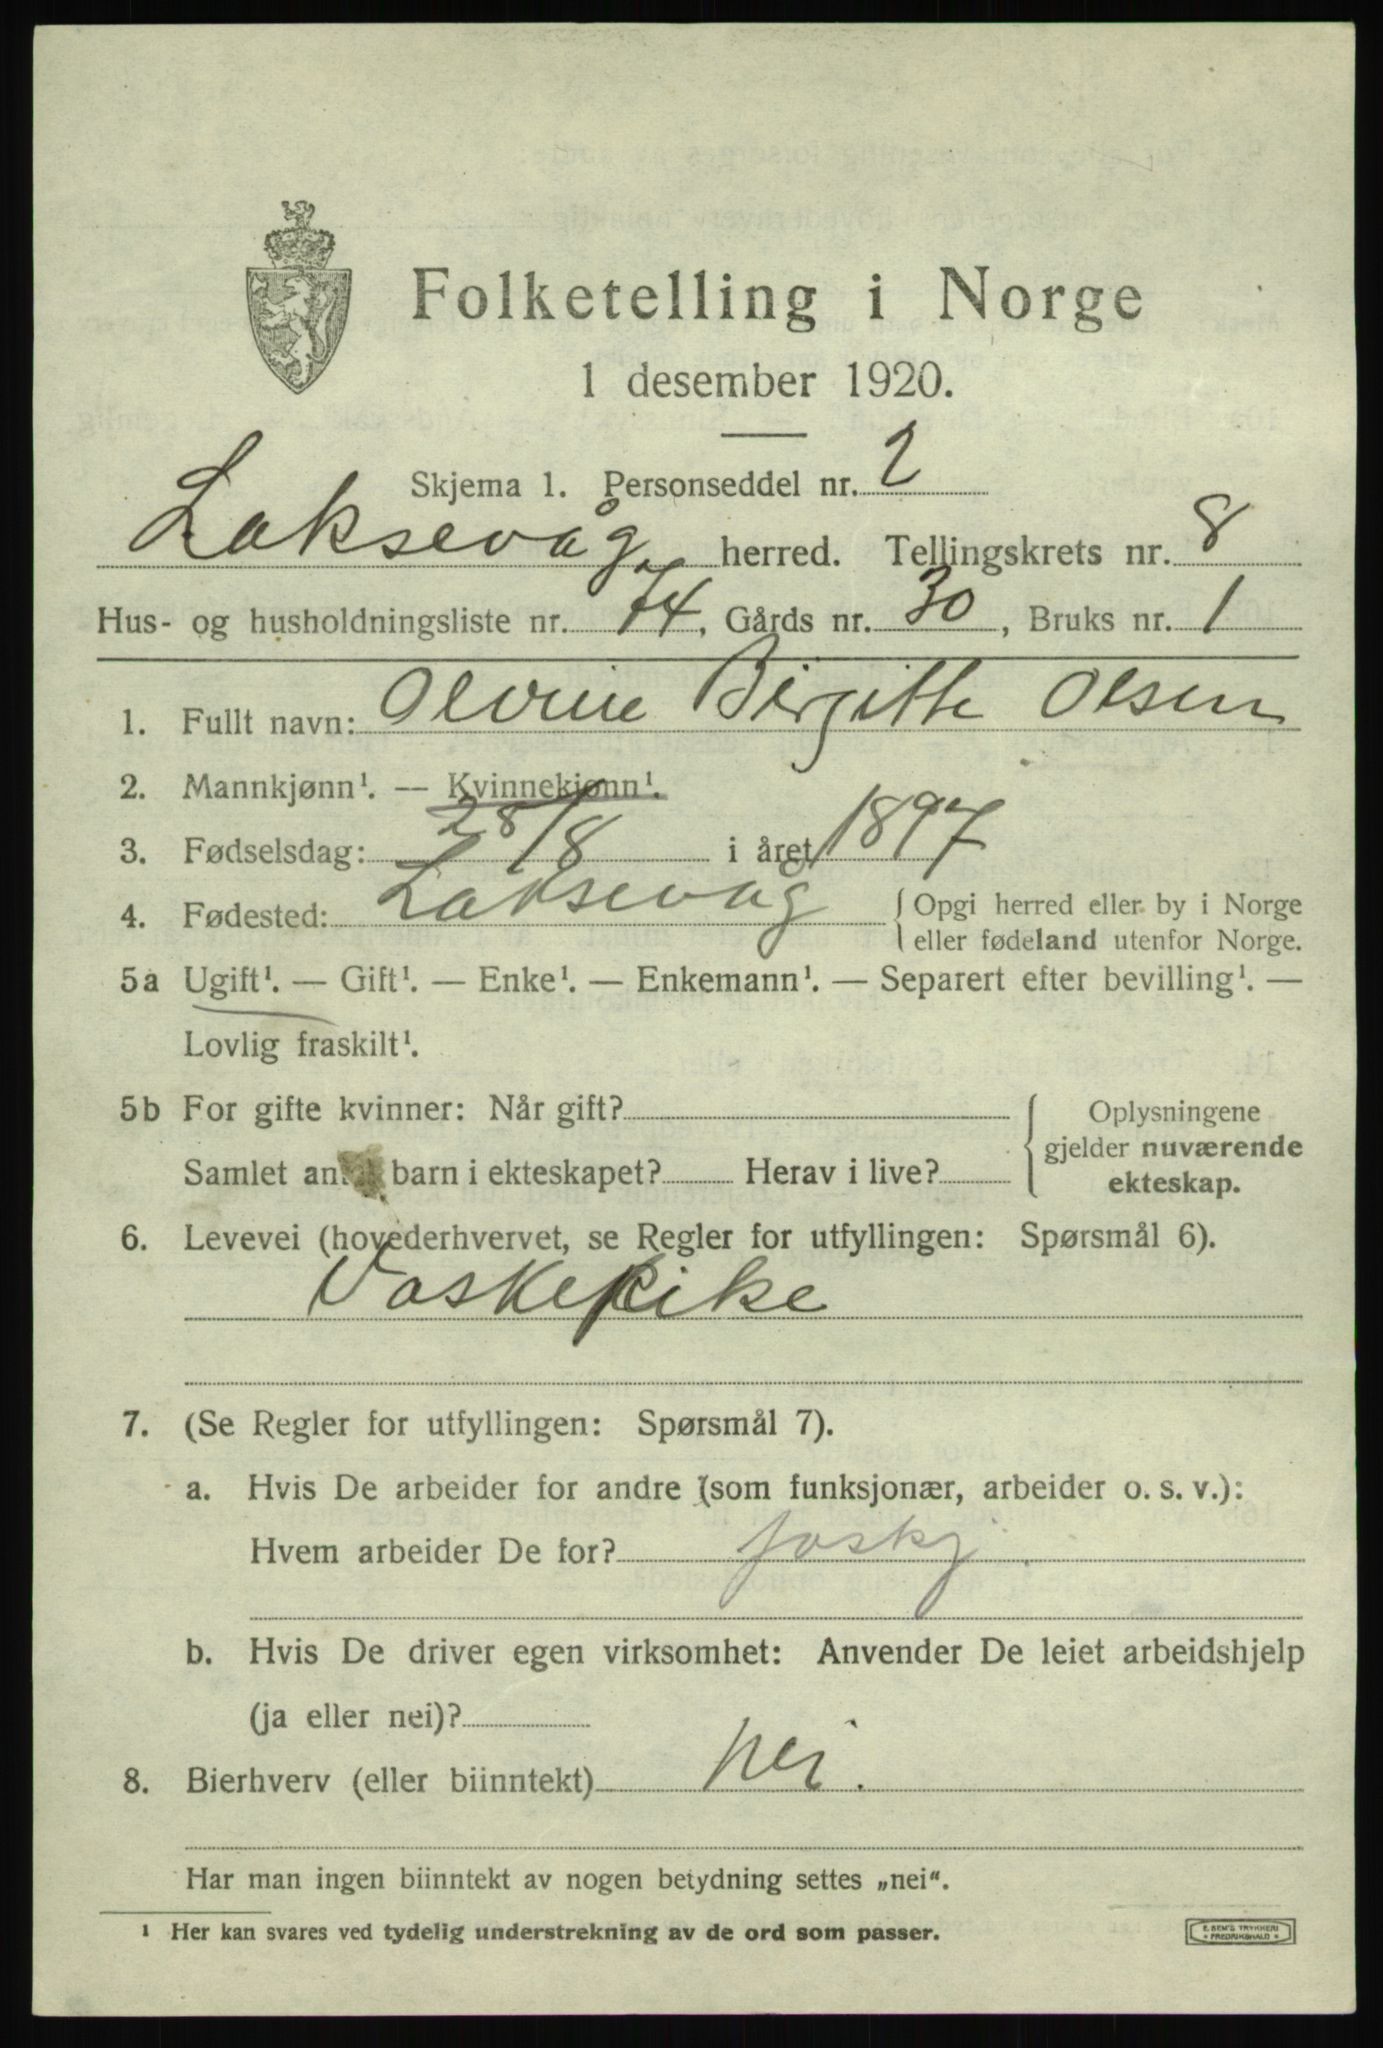 Folketelling i Norge
1 desember 1920.
Skjema 1. Personseddel nr. 2
Laksevåg herred. Tellingskrets nr. 8
Hus- og husholdningsliste nr. 74, Gårds nr. 30, Bruks nr. 1
1. Fullt navn: Olvine Birgitte Olsen
2. Mannkjønn¹. — Kvinnekjønn¹.
3. Fødselsdag: 28/8 i året 1897
4. Fødested: Laksevåg {Opgi herred eller by i Norge
eller fødeland utenfor Norge.
5a Ugift¹. — Gift¹. — Enke¹. — Enkemann¹. — Separert efter bevilling¹. —
Lovlig fraskilt¹.
5b For gifte kvinner: Når gift? { Oplysningene
gjelder nuværende
Samlet antall barn i ekteskapet? Herav i live? ekteskap.
6. Levevei (hovederhvervet, se Regler for utfyllingen: Spørsmål 6).
Vaskepike
7. (Se Regler for utfyllingen: Spørsmål 7).
a. Hvis De arbeider for andre (som funksjonær, arbeider o. s. v.):
Hvem arbeider De for?
b. Hvis De driver egen virksomhet: Anvender De leiet arbeidshjelp
(ja eller nei)?
8. Bierhverv (eller biinntekt) nei.
Har man ingen biinntekt av nogen betydning settes „nei“.
¹ Her kan svares ved tydelig understrekning av de ord som passer.
E. SEM'S TRYKKERI
* FREDRIKSHALD *